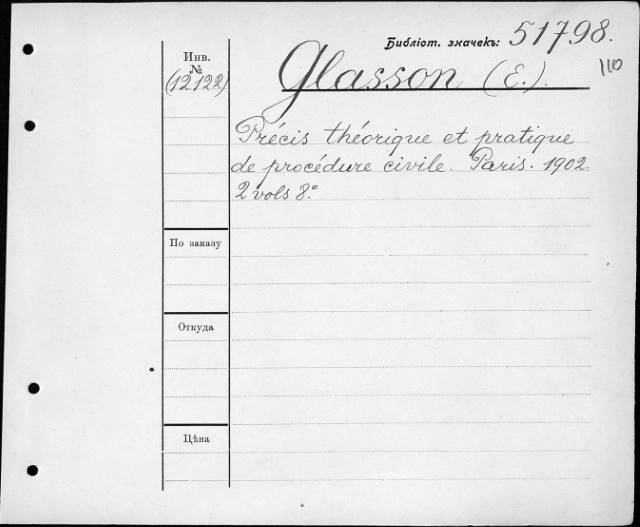 Библіот. значекъ: 51798.
110
Инв.
№
(12122)
Glasson (E.).
Précis théorique et pratique
de procédure civile. Paris. 1902.
2 vols 8º
По заказу
Откуда
Цѣна